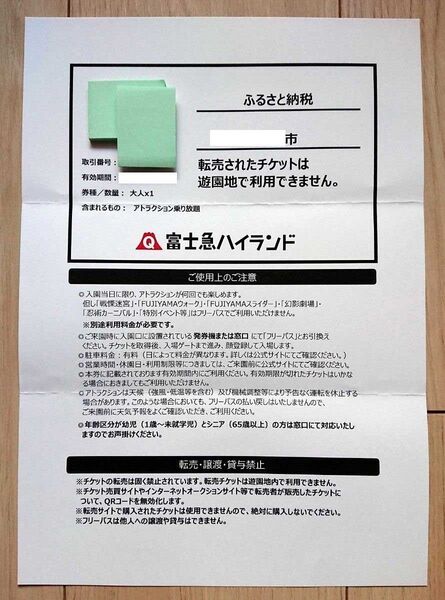 ふるさと納税
市
取引番号：
有効期間：
券種／数量： 大人x1
含まれるもの： アトラクション乗り放題
転売されたチケットは
遊園地で利用できません。
Q 富士急ハイランド
ご使用上のご注意
◎入園当日に限り、アトラクションが何回でも楽しめます。
但し「戦慄迷宮」・「FUJIYAMAウォーク」・「FUJIYAMAスライダー」・「幻影劇場」・
「忍術カーニバル」・「特別イベント等」はフリーパスでご利用いただけません。
※別途利用料金が必要です。
◎ご来園時に入園口に設置されている発券機または窓口にて「フリーパス」とお引換え
ください。チケットを取得後、入場ゲートまで進み、顔登録して入場します。
◎駐車料金：有料（日によって料金が異なります。詳しくは公式サイトにてご確認ください。）
◎営業時間・休園日・利用制限等につきましては、ご来園前に公式サイトにてご確認ください。
◎本券に記載されております有効期間内にご利用ください。有効期限が切れたチケットはいかな
る場合におきましてもご利用いただけません。
◎アトラクションは天候（強風・低温等を含む）及び機械調整等により予告なく運転を休止する
場合があります。このような場合においても、フリーパスの払い戻しはいたしませんので、
ご来園前に天気予報をよくご確認いただき、ご利用ください。
◎年齢区分が幼児（1歳～未就学児）とシニア（65歳以上）の方は窓口にて対応いたし
ますのでお声掛けください。
転売・譲渡・貸与禁止
※チケットの転売は固く禁止されています。転売チケットは遊園地内で利用できません。
※チケット売買サイトやインターネットオークションサイト等で転売者が販売したチケットに
ついて、QRコードを無効化します。
※転売サイトで購入されたチケットは使用できませんので、絶対に購入しないでください。
※フリーパスは他人への譲渡や貸与はできません。